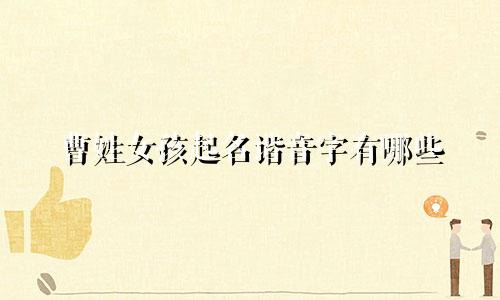 曹姓女孩起名谐音字有哪些